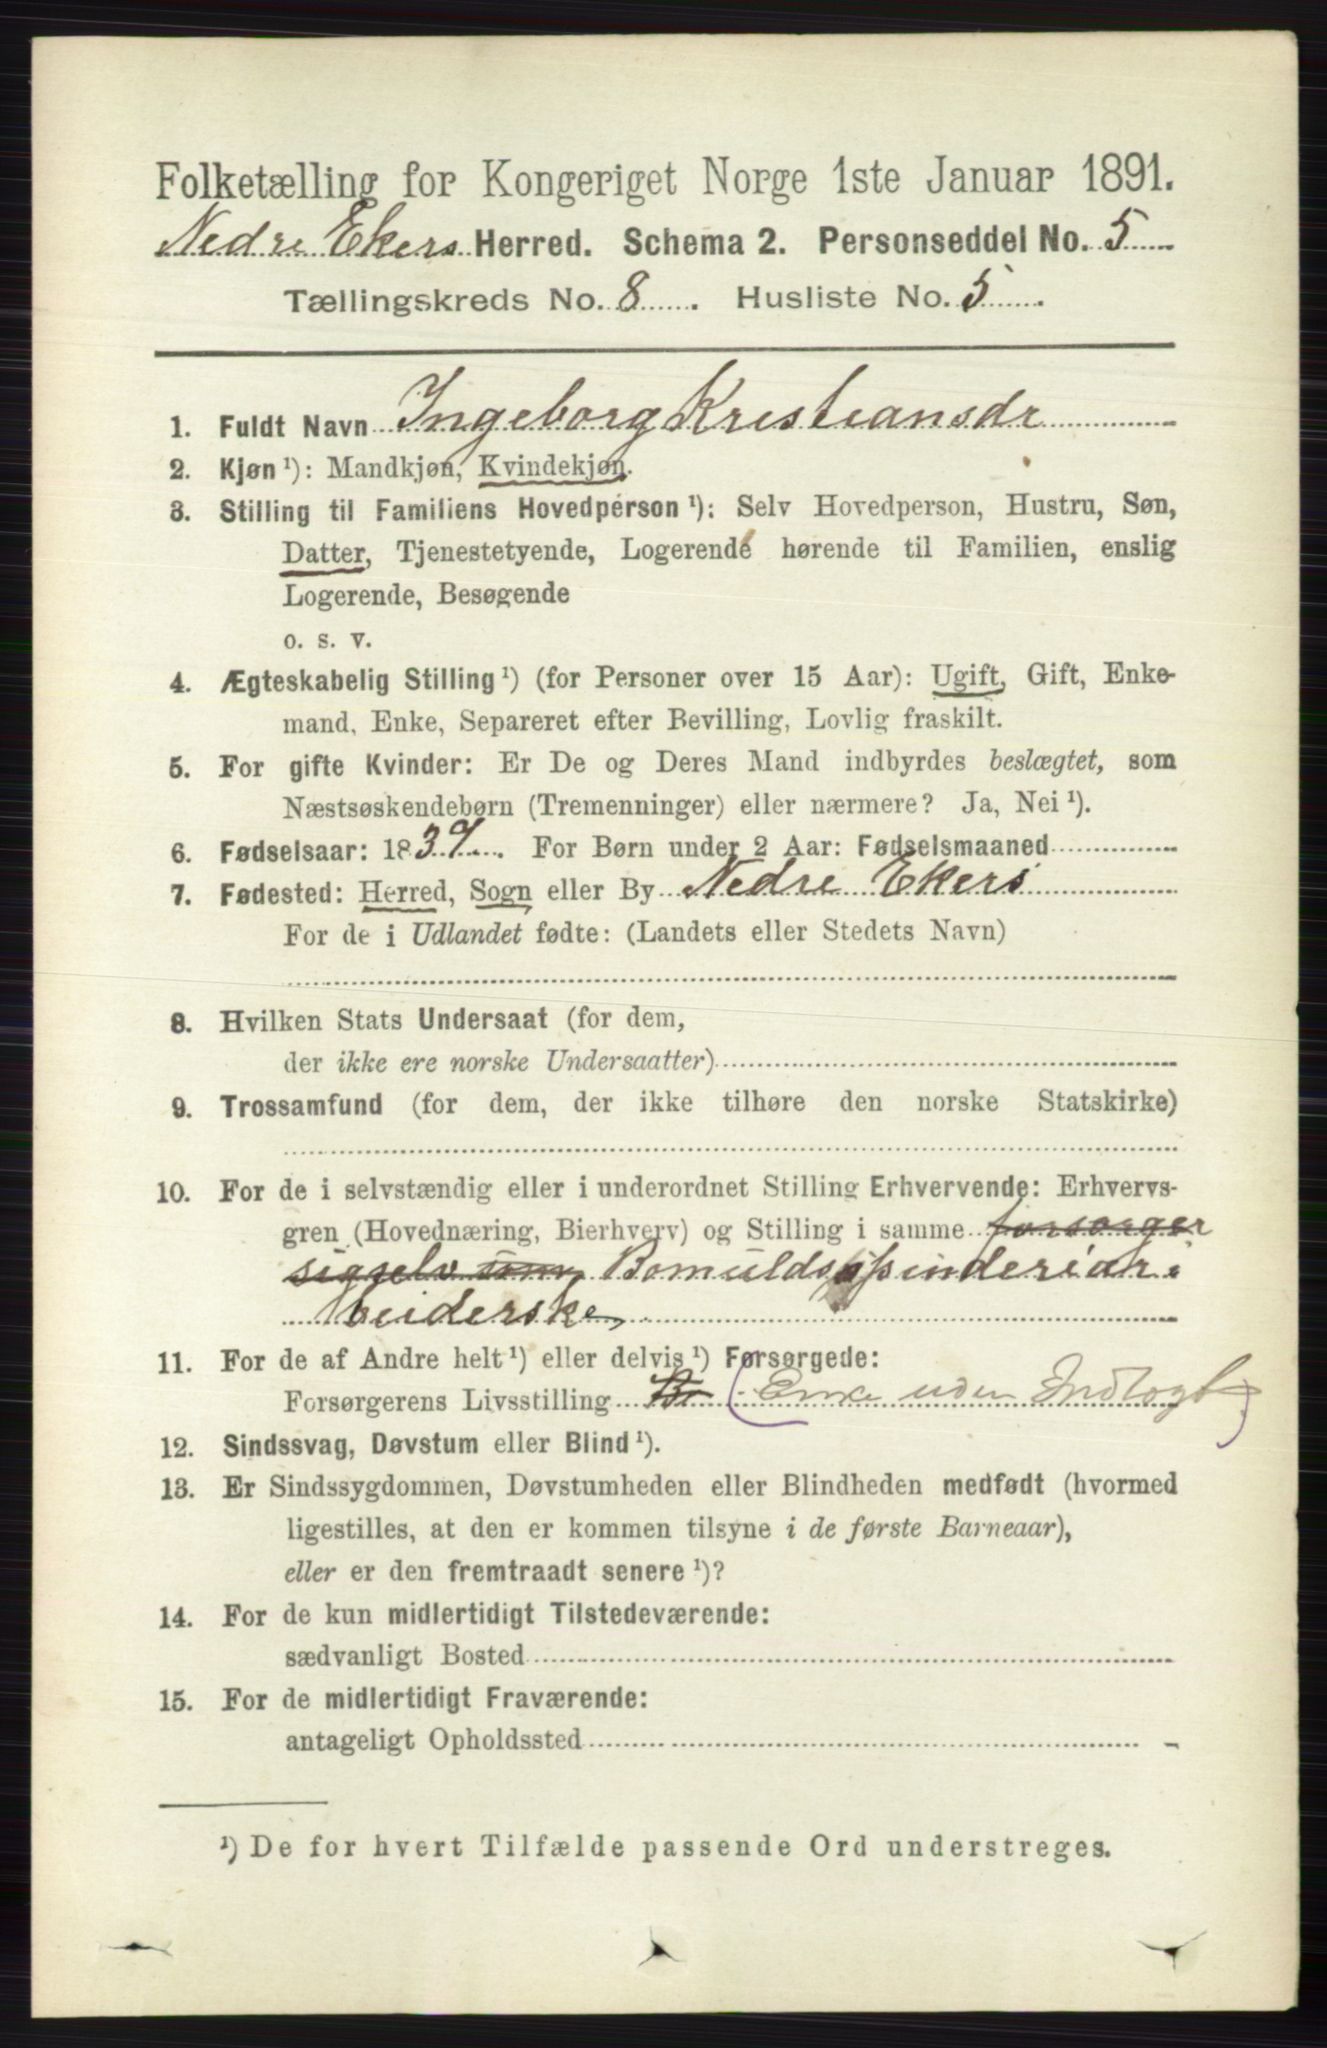 Folketælling for Kongeriget Norge 1ste Januar 1891.
Nedre Ekers Herred. Schema 2. Personseddel No. 5
Tællingskreds No. 8. Husliste No. 5.
1. Fuldt Navn Ingeborg Kristiansdr
2. Kjøn ¹): Mandkjøn, Kvindekjøn.
3. Stilling til Familiens Hovedperson ¹): Selv Hovedperson, Hustru, Søn,
Datter, Tjenestetyende, Logerende hørende til Familien, enslig
Logerende, Besøgende
o. s. v.
4. Ægteskabelig Stilling ¹) (for Personer over 15 Aar): Ugift, Gift, Enke-
mand, Enke, Separeret efter Bevilling, Lovlig fraskilt.
5. For gifte Kvinder: Er De og Deres Mand indbyrdes beslægtet, som
Næstsøskendebørn (Tremenninger) eller nærmere? Ja, Nei ¹).
6. Fødselsaar: 1839. For Børn under 2 Aar: Fødselsmaaned
7. Fødested: Herred, Sogn eller By Nedre Ekers
For de i Udlandet fødte: (Landets eller Stedets Navn)
8. Hvilken Stats Undersaat (for dem,
der ikke ere norske Undersaatter)
9. Trossamfund (for dem, der ikke tilhøre den norske Statskirke)
10. For de i selvstændig eller i underordnet Stilling Erhvervende: Erhvervs-
gren (Hovednæring, Bierhverv) og Stilling i samme forsørger
sigselv som Bomuldsspinderiar-
beiderske
11. For de af Andre helt ¹) eller delvis ¹) Forsørgede:
Forsørgerens Livsstilling (Enke uden Indtægt)
12. Sindssvag, Døvstum eller Blind ¹).
13. Er Sindssygdommen, Døvstumheden eller Blindheden medfødt (hvormed
ligestilles, at den er kommen tilsyne i de første Barneaar),
eller er den fremtraadt senere ¹)?
14. For de kun midlertidigt Tilstedeværende:
sædvanligt Bosted
15. For de midlertidigt Fraværende:
antageligt Opholdssted
¹) De for hvert Tilfælde passende Ord understreges.